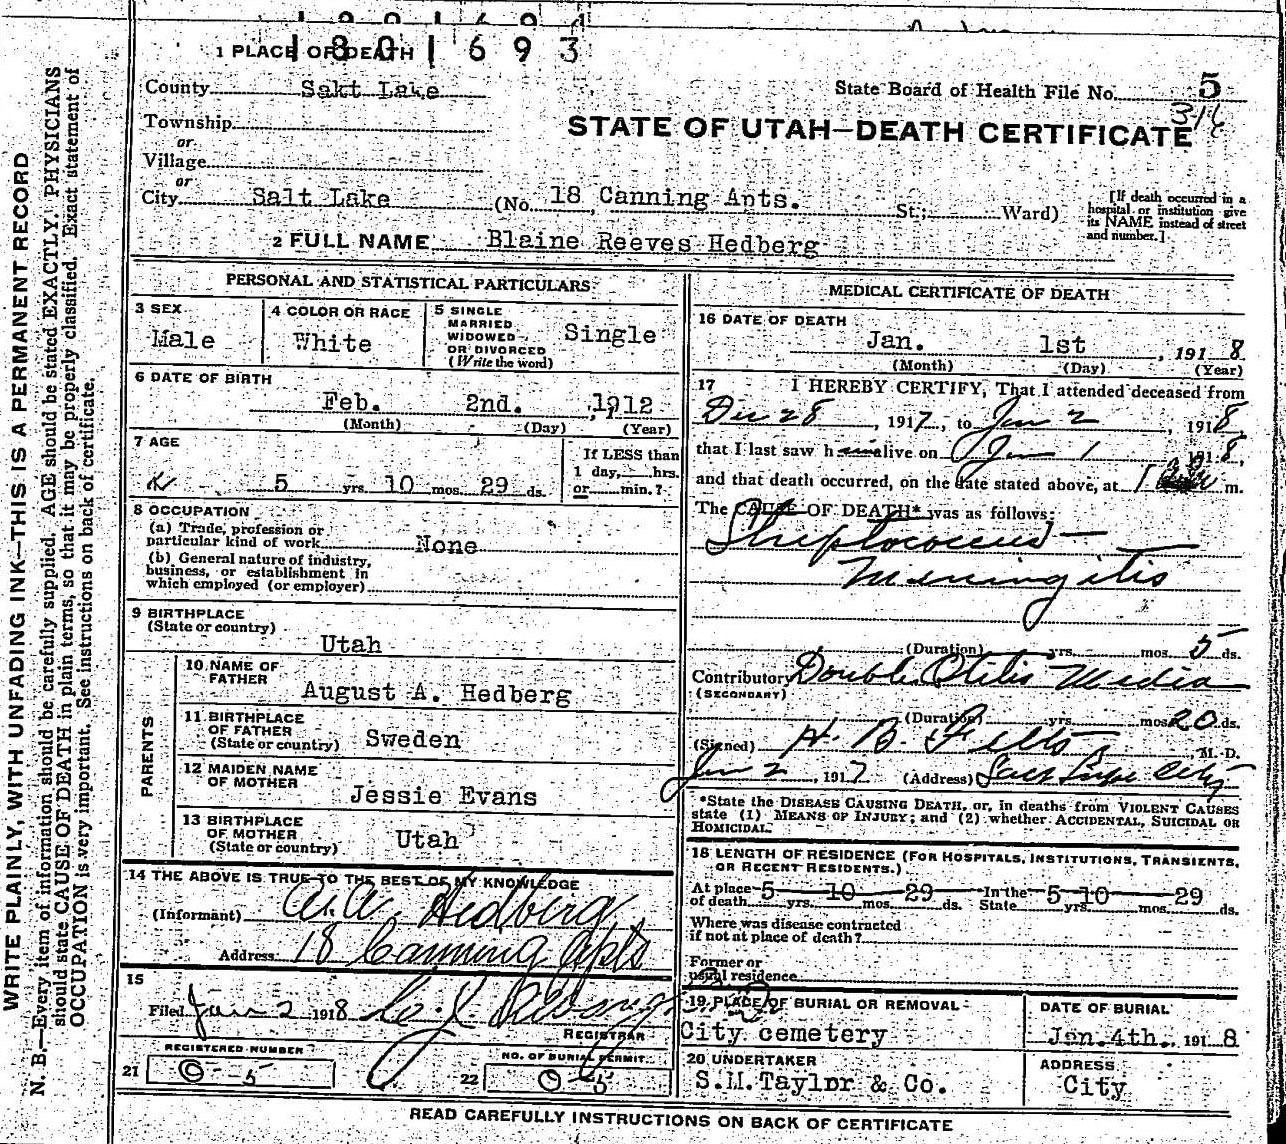 1801693
1 PLACE OF DEATH
County Sakt Lake
State Board of Health File No. 5
316
Township
or
Village
or
STATE OF UTAH—DEATH CERTIFICATE
City Salt Lake (No. 18 Canning Apts. St; Ward)
[If death occurred in a hospital or institution give its NAME instead of street and number.]
2 FULL NAME Blaine Reeves Hedberg
PERSONAL AND STATISTICAL PARTICULARS
3 SEX
Male
4 COLOR OR RACE
White
5 SINGLE
MARRIED
WIDOWED
OR DIVORCED
(Write the word)
Single
6 DATE OF BIRTH
Feb. 2nd. 1912
(Month) (Day) (Year)
7 AGE
5 yrs. 10 mos. 29 ds.
If LESS than
1 day, hrs.
or min.?
8 OCCUPATION
(a) Trade, profession or
particular kind of work None
(b) General nature of industry,
business, or establishment in
which employed (or employer)
9 BIRTHPLACE
(State or country)
Utah
PARENTS
10 NAME OF
FATHER
August A. Hedberg
11 BIRTHPLACE
OF FATHER
(State or country) Sweden
12 MAIDEN NAME
OF MOTHER
Jessie Evans
13 BIRTHPLACE
OF MOTHER
(State or country) Utah
14 THE ABOVE IS TRUE TO THE BEST OF MY KNOWLEDGE
(Informant) A. A. Hedberg
Address 18 Canning Apts
15
Filed Jan 2 1918
REGISTRAR
REGISTERED NUMBER
21 0-5
NO. OF BURIAL PERMIT
22 0-5
MEDICAL CERTIFICATE OF DEATH
16 DATE OF DEATH
Jan. 1st , 1918
(Month) (Day) (Year)
17 I HEREBY CERTIFY, That I attended deceased from
Dec 28, 1917, to Jan 2, 1918
that I last saw h alive on Jan 1 1918,
and that death occurred, on the date stated above, at 1 m.
The CAUSE OF DEATH* was as follows:
Streptococcus
Meningitis
(Duration) yrs. mos. 5 ds.
Contributory Double Otitis Media
(SECONDARY)
(Duration) yrs. mos. 20 ds.
(Signed) H. B. Felts M. D.
Jan 2, 1917 (Address) Salt Lake City
*State the DISEASE CAUSING DEATH, or, in deaths from VIOLENT CAUSES
state (1) MEANS OF INJURY; and (2) whether ACCIDENTAL, SUICIDAL OR
HOMICIDAL.
18 LENGTH OF RESIDENCE (FOR HOSPITALS, INSTITUTIONS, TRANSIENTS,
OR RECENT RESIDENTS.)
At place
of death 5 yrs. 10 mos. 29 ds. In the
State 5 yrs. 10 mos. 29 ds.
Where was disease contracted
if not at place of death?
Former or
usual residence
19 PLACE OF BURIAL OR REMOVAL
City cemetery
DATE OF BURIAL
Jan. 4th., 1918
20 UNDERTAKER
S.M.Taylor & Co.
ADDRESS
City
READ CAREFULLY INSTRUCTIONS ON BACK OF CERTIFICATE
WRITE PLAINLY, WITH UNFADING INK—THIS IS A PERMANENT RECORD
N. B.—Every item of information should be carefully supplied. AGE should be stated EXACTLY. PHYSICIANS
should state CAUSE OF DEATH in plain terms, so that it may be properly classified. Exact statement of
OCCUPATION is very important. See instructions on back of certificate.